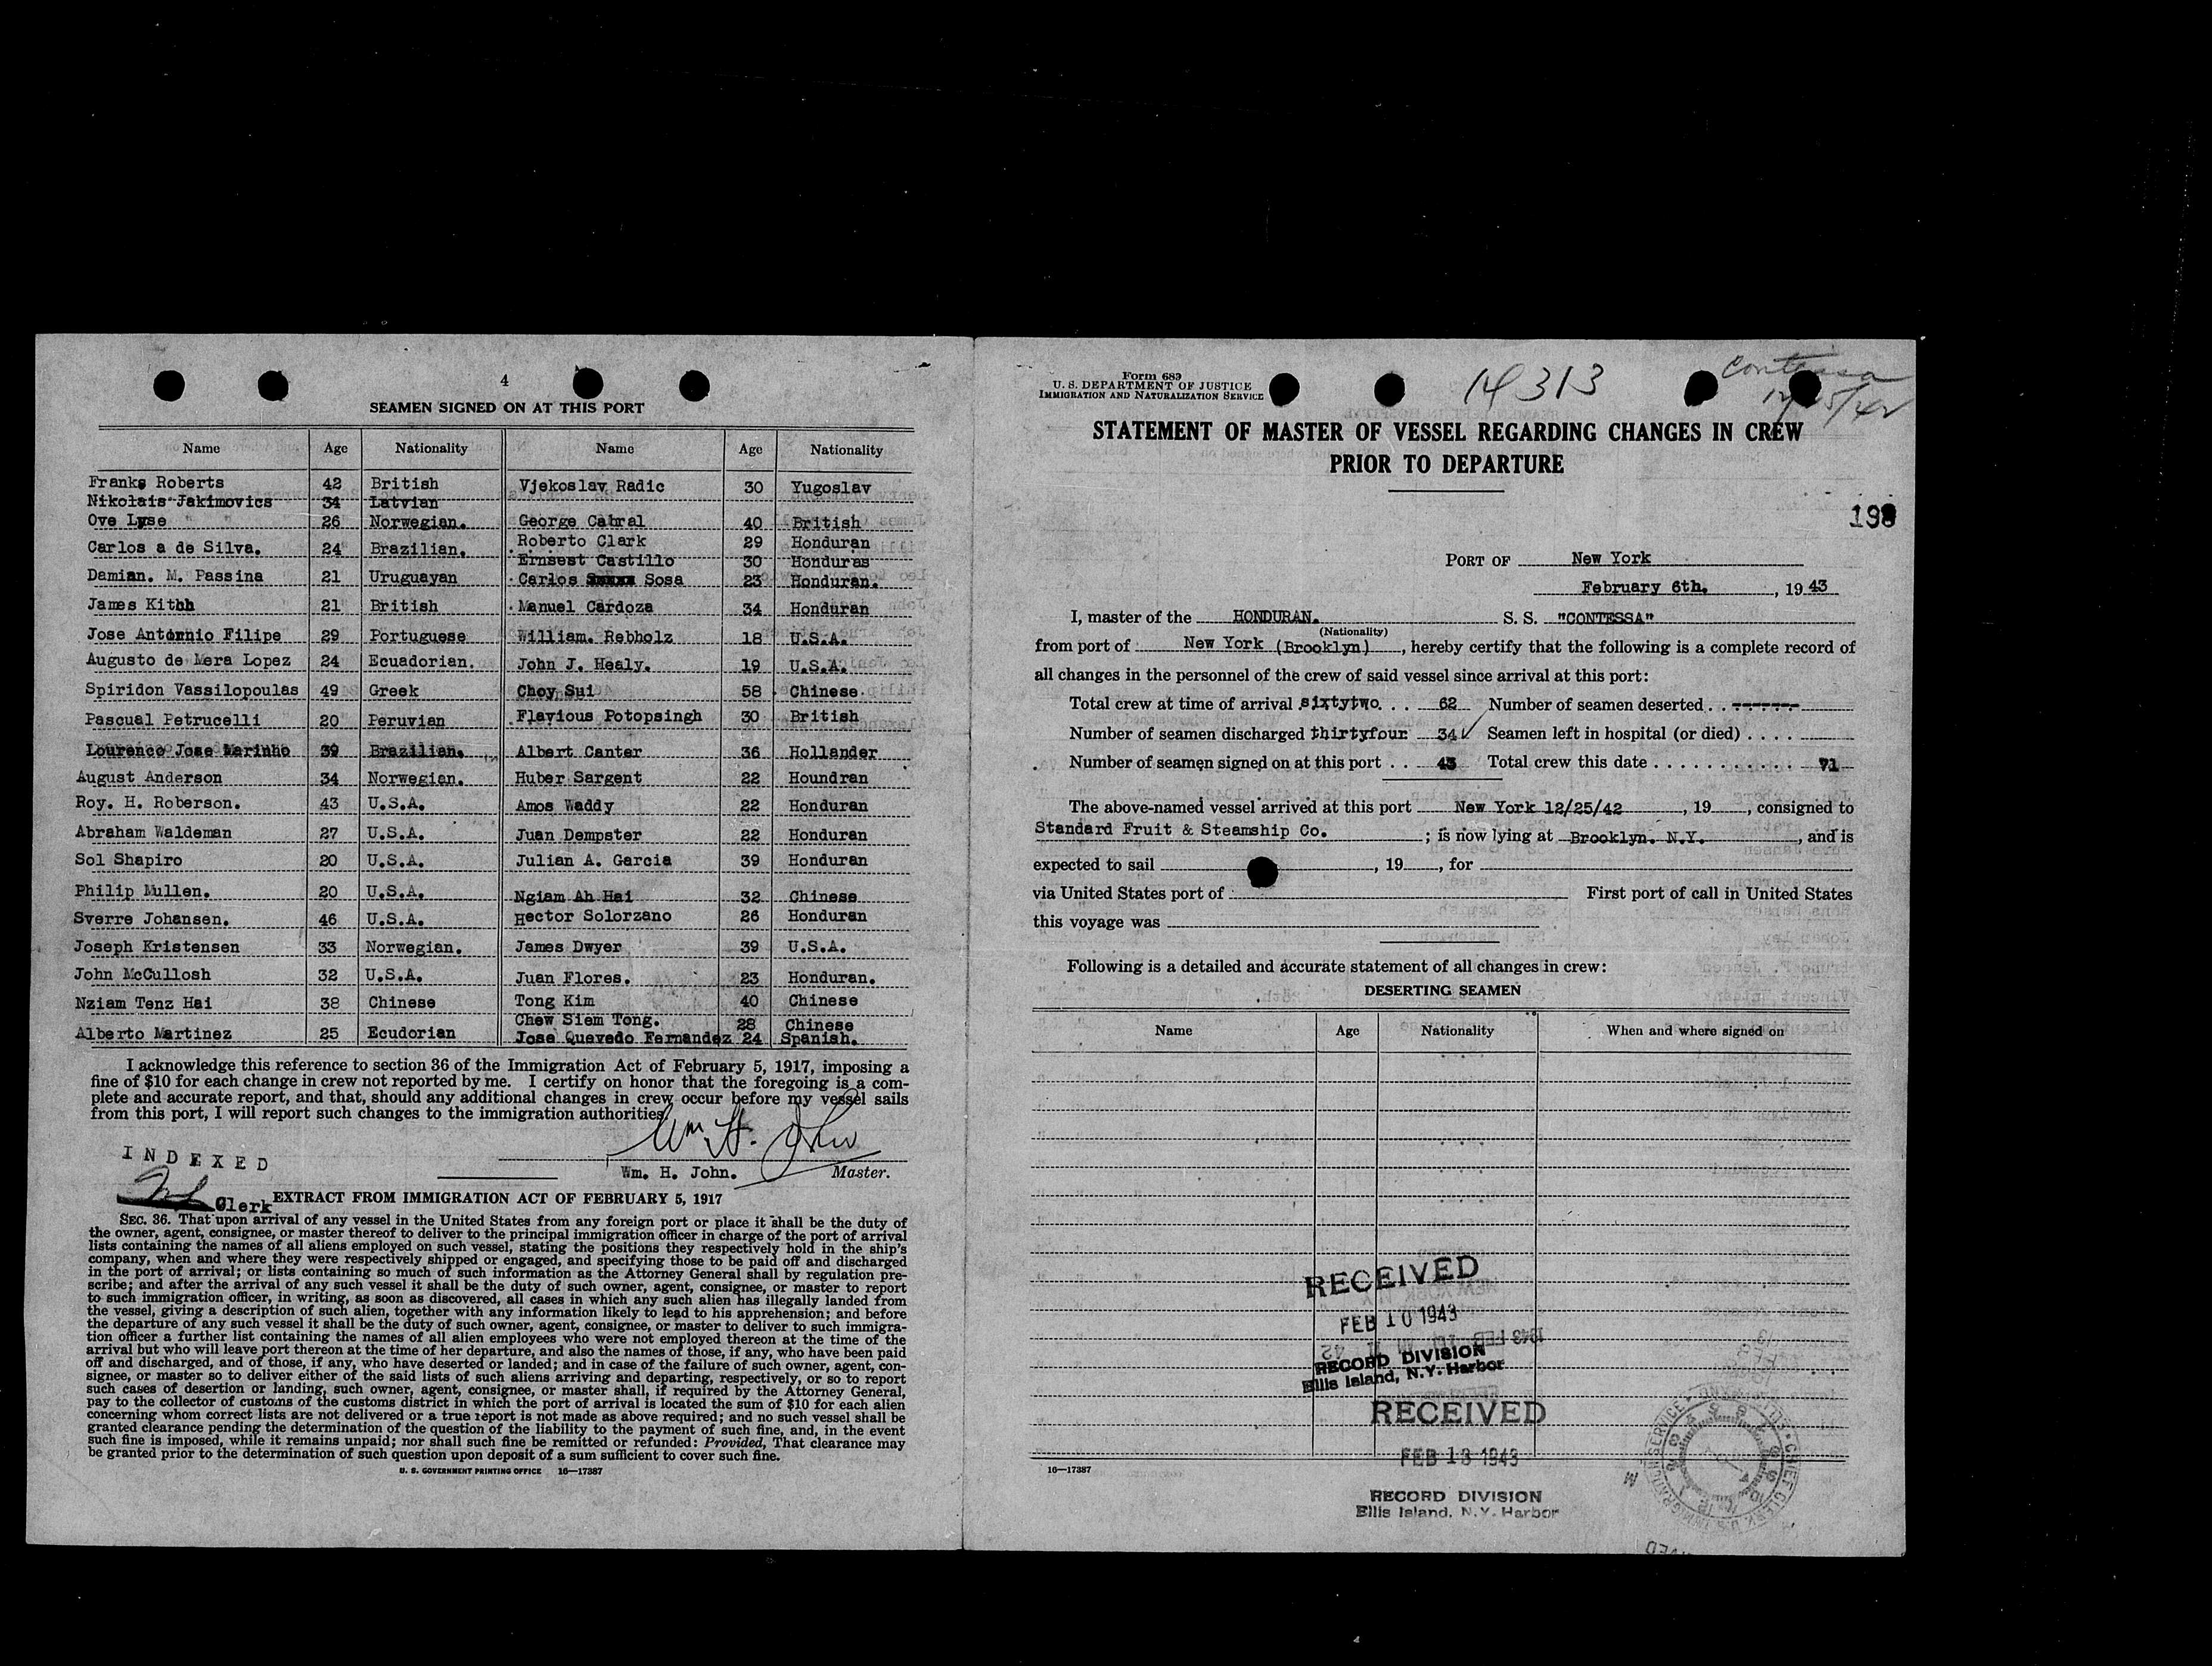 4
SEAMEN SIGNED ON AT THIS PORT
Name Age Nationality Name Age Nationality
Franks Roberts 42 British Vjekoslav Radic 30 Yugoslav
Nikolais Jakimovics 34 Latvian
Ove Lyse 26 Norwegian. George Cabral 40 British
Carlos a de Silva. 24 Brazilian. Roberto Clark 29 Honduran
Ernsest Castillo 30 Honduras
Damian. M. Passina 21 Uruguayan Carlos Sosa 23 Honduran.
James Kithh 21 British Manuel Cardoza 34 Honduran
Jose Antonnio Filipe 29 Portuguese William. Rebholz 18 U.S.A.
Augusto de Mera Lopez 24 Ecuadorian. John J. Healy. 19 U.S.A.
Spiridon Vassilopoulas 49 Greek Choy Sui 58 Chinese.
Pascual Petrucelli 20 Peruvian Flavious Potopsingh 30 British
Lourenco Jose Marinho 39 Brazilian. Albert Canter 36 Hollander
August Anderson 34 Norwegian. Huber Sargent 22 Houndran
Roy. H. Roberson. 43 U.S.A. Amos Waddy 22 Honduran
Abraham Waldeman 27 U.S.A. Juan Dempster 22 Honduran
Sol Shapiro 20 U.S.A. Julian A. Garcia 39 Honduran
Philip Mullen. 20 U.S.A. Ngiam Ah Hai 32 Chinese
Sverre Johansen. 46 U.S.A. Hector Solorzano 26 Honduran
Joseph Kristensen 33 Norwegian. James Dwyer 39 U.S.A.
John McCullosh 32 U.S.A. Juan Flores. 23 Honduran.
Nziam Tenz Hai 38 Chinese Tong Kim 40 Chinese
Chew Siem Tong. 28 Chinese
Alberto Martinez 25 Ecudorian Jose Quevedo Fernandez 24 Spanish.
I acknowledge this reference to section 36 of the Immigration Act of February 5, 1917, imposing a
fine of $10 for each change in crew not reported by me. I certify on honor that the foregoing is a com-
plete and accurate report, and that, should any additional changes in crew occur before my vessel sails
from this port, I will report such changes to the immigration authorities.
Wm. H. John
INDEXED
Wm. H. John. Master.
Clerk
EXTRACT FROM IMMIGRATION ACT OF FEBRUARY 5, 1917
SEC. 36. That upon arrival of any vessel in the United States from any foreign port or place it shall be the duty of
the owner, agent, consignee, or master thereof to deliver to the principal immigration officer in charge of the port of arrival
lists containing the names of all aliens employed on such vessel, stating the positions they respectively hold in the ship's
company, when and where they were respectively shipped or engaged, and specifying those to be paid off and discharged
in the port of arrival; or lists containing so much of such information as the Attorney General shall by regulation pre-
scribe; and after the arrival of any such vessel it shall be the duty of such owner, agent, consignee, or master to report
to such immigration officer, in writing, as soon as discovered, all cases in which any such alien has illegally landed from
the vessel, giving a description of such alien, together with any information likely to lead to his apprehension; and before
the departure of any such vessel it shall be the duty of such owner, agent, consignee, or master to deliver to such immigra-
tion officer a further list containing the names of all alien employees who were not employed thereon at the time of the
arrival but who will leave port thereon at the time of her departure, and also the names of those, if any, who have been paid
off and discharged, and of those, if any, who have deserted or landed; and in case of the failure of such owner, agent, con-
signee, or master so to deliver either of the said lists of such aliens arriving and departing, respectively, or so to report
such cases of desertion or landing, such owner, agent, consignee, or master shall, if required by the Attorney General,
pay to the collector of customs of the customs district in which the port of arrival is located the sum of $10 for each alien
concerning whom correct lists are not delivered or a true report is not made as above required; and no such vessel shall be
granted clearance pending the determination of the question of the liability to the payment of such fine, and, in the event
such fine is imposed, while it remains unpaid; nor shall such fine be remitted or refunded: Provided, That clearance may
be granted prior to the determination of such question upon deposit of a sum sufficient to cover such fine.
U. S. GOVERNMENT PRINTING OFFICE 16—17387
Form 689
U. S. DEPARTMENT OF JUSTICE
IMMIGRATION AND NATURALIZATION SERVICE
14313
Contessa
12/25/42
STATEMENT OF MASTER OF VESSEL REGARDING CHANGES IN CREW
PRIOR TO DEPARTURE
198
PORT OF New York
February 6th. , 19 43
I, master of the HONDURAN. S. S. "CONTESSA"
(Nationality)
from port of New York (Brooklyn) , hereby certify that the following is a complete record of
all changes in the personnel of the crew of said vessel since arrival at this port:
Total crew at time of arrival sixtytwo. . . 62 Number of seamen deserted . . -------
Number of seamen discharged thirtyfour 34 ✓ Seamen left in hospital (or died) . . . .
Number of seamen signed on at this port . . 43 Total crew this date . . . . . . . . . . . 71
The above-named vessel arrived at this port New York 12/25/42 , 19 , consigned to
Standard Fruit & Steamship Co. ; is now lying at Brooklyn. N.Y. , and is
expected to sail , 19 , for
via United States port of First port of call in United States
this voyage was
Following is a detailed and accurate statement of all changes in crew:
DESERTING SEAMEN
Name Age Nationality When and where signed on
RECEIVED
FEB 10 1943
RECORD DIVISION
Ellis Island, N.Y. Harbor
RECEIVED
FEB 13 1943
16—17387
RECORD DIVISION
Ellis Island, N.Y. Harbor